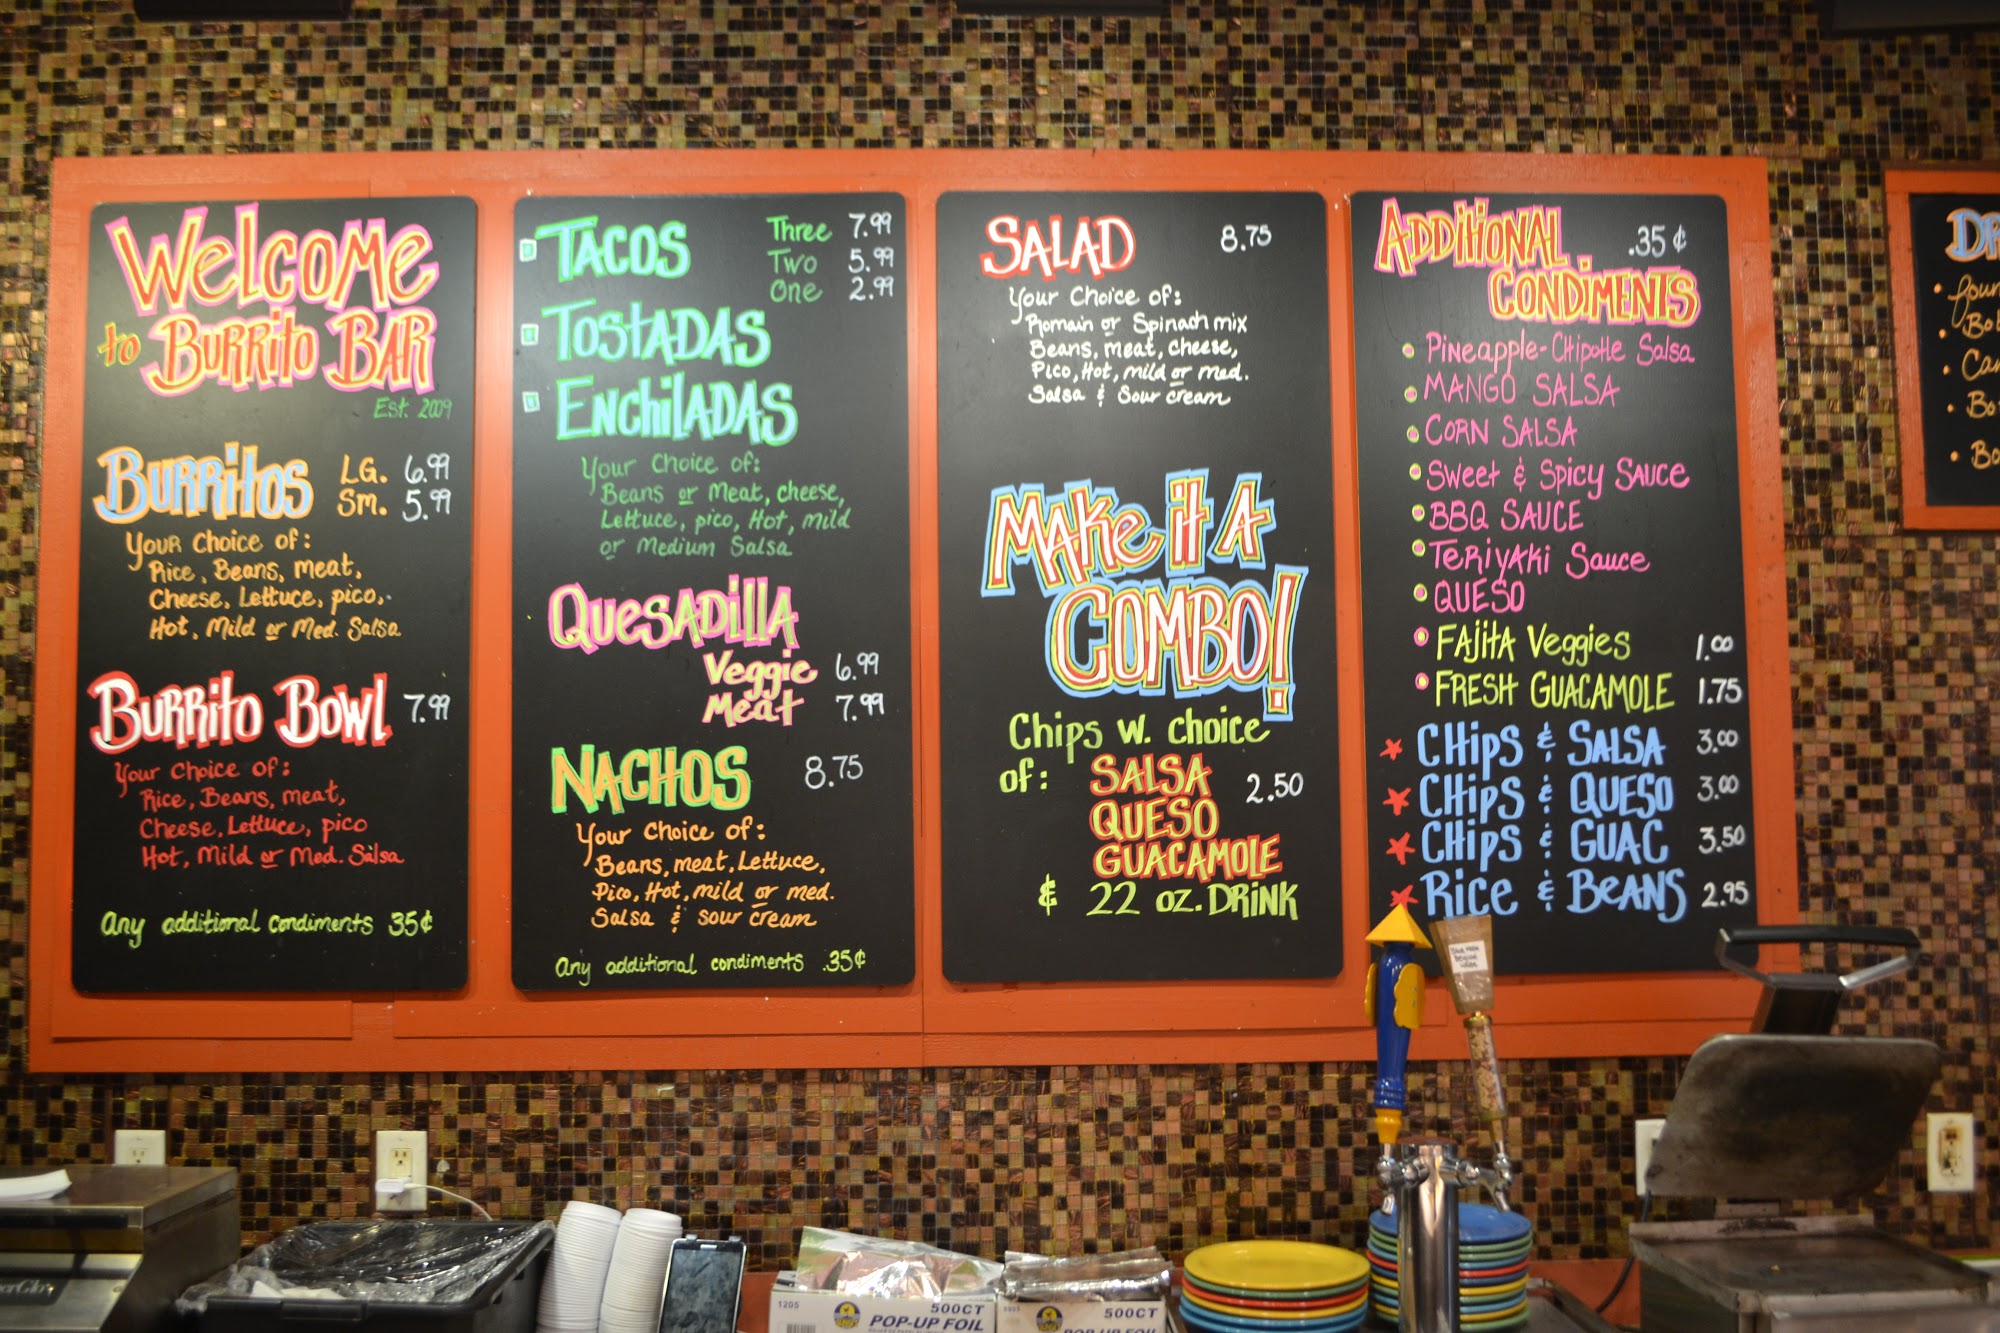 WELCOME
to BURRITO BAR
Est. 2009
BURRITOS LG. 6.99
Sm. 5.99
Your Choice of:
Rice, Beans, meat,
Cheese, Lettuce, pico,
Hot, Mild or Med. Salsa
BURRITO BOWL 7.99
Your Choice of:
Rice, Beans, meat,
Cheese, Lettuce, pico
Hot, Mild or Med. Salsa
Any additional condiments 35¢
TACOS Three 7.99
Two 5.99
One 2.99
TOSTADAS
ENCHILADAS
Your Choice of:
Beans or Meat, cheese,
Lettuce, pico, Hot, mild
or Medium Salsa
QUESADILLA
Veggie 6.99
Meat 7.99
NACHOS 8.75
Your Choice of:
Beans, meat, Lettuce,
Pico, Hot, mild or med.
Salsa & sour cream
Any additional condiments .35¢
SALAD 8.75
Your Choice of:
Romain or Spinach mix
Beans, meat, cheese,
Pico, Hot, mild or med.
Salsa & Sour cream
MAKE it A
COMBO!
Chips w. choice
of: SALSA 2.50
QUESO
GUACAMOLE
& 22 oz. DRINK
ADDITIONAL .35¢
CONDIMENTS
Pineapple-Chipotle Salsa
MANGO SALSA
CORN SALSA
Sweet & Spicy Sauce
BBQ SAUCE
TERIYAKI Sauce
QUESO
FAJITA Veggies 1.00
FRESH GUACAMOLE 1.75
CHIPS & SALSA 3.00
CHIPS & QUESO 3.00
CHIPS & GUAC 3.50
RICE & BEANS 2.95
1205 500CT
POP-UP FOIL
500CT
POP-UP FOIL